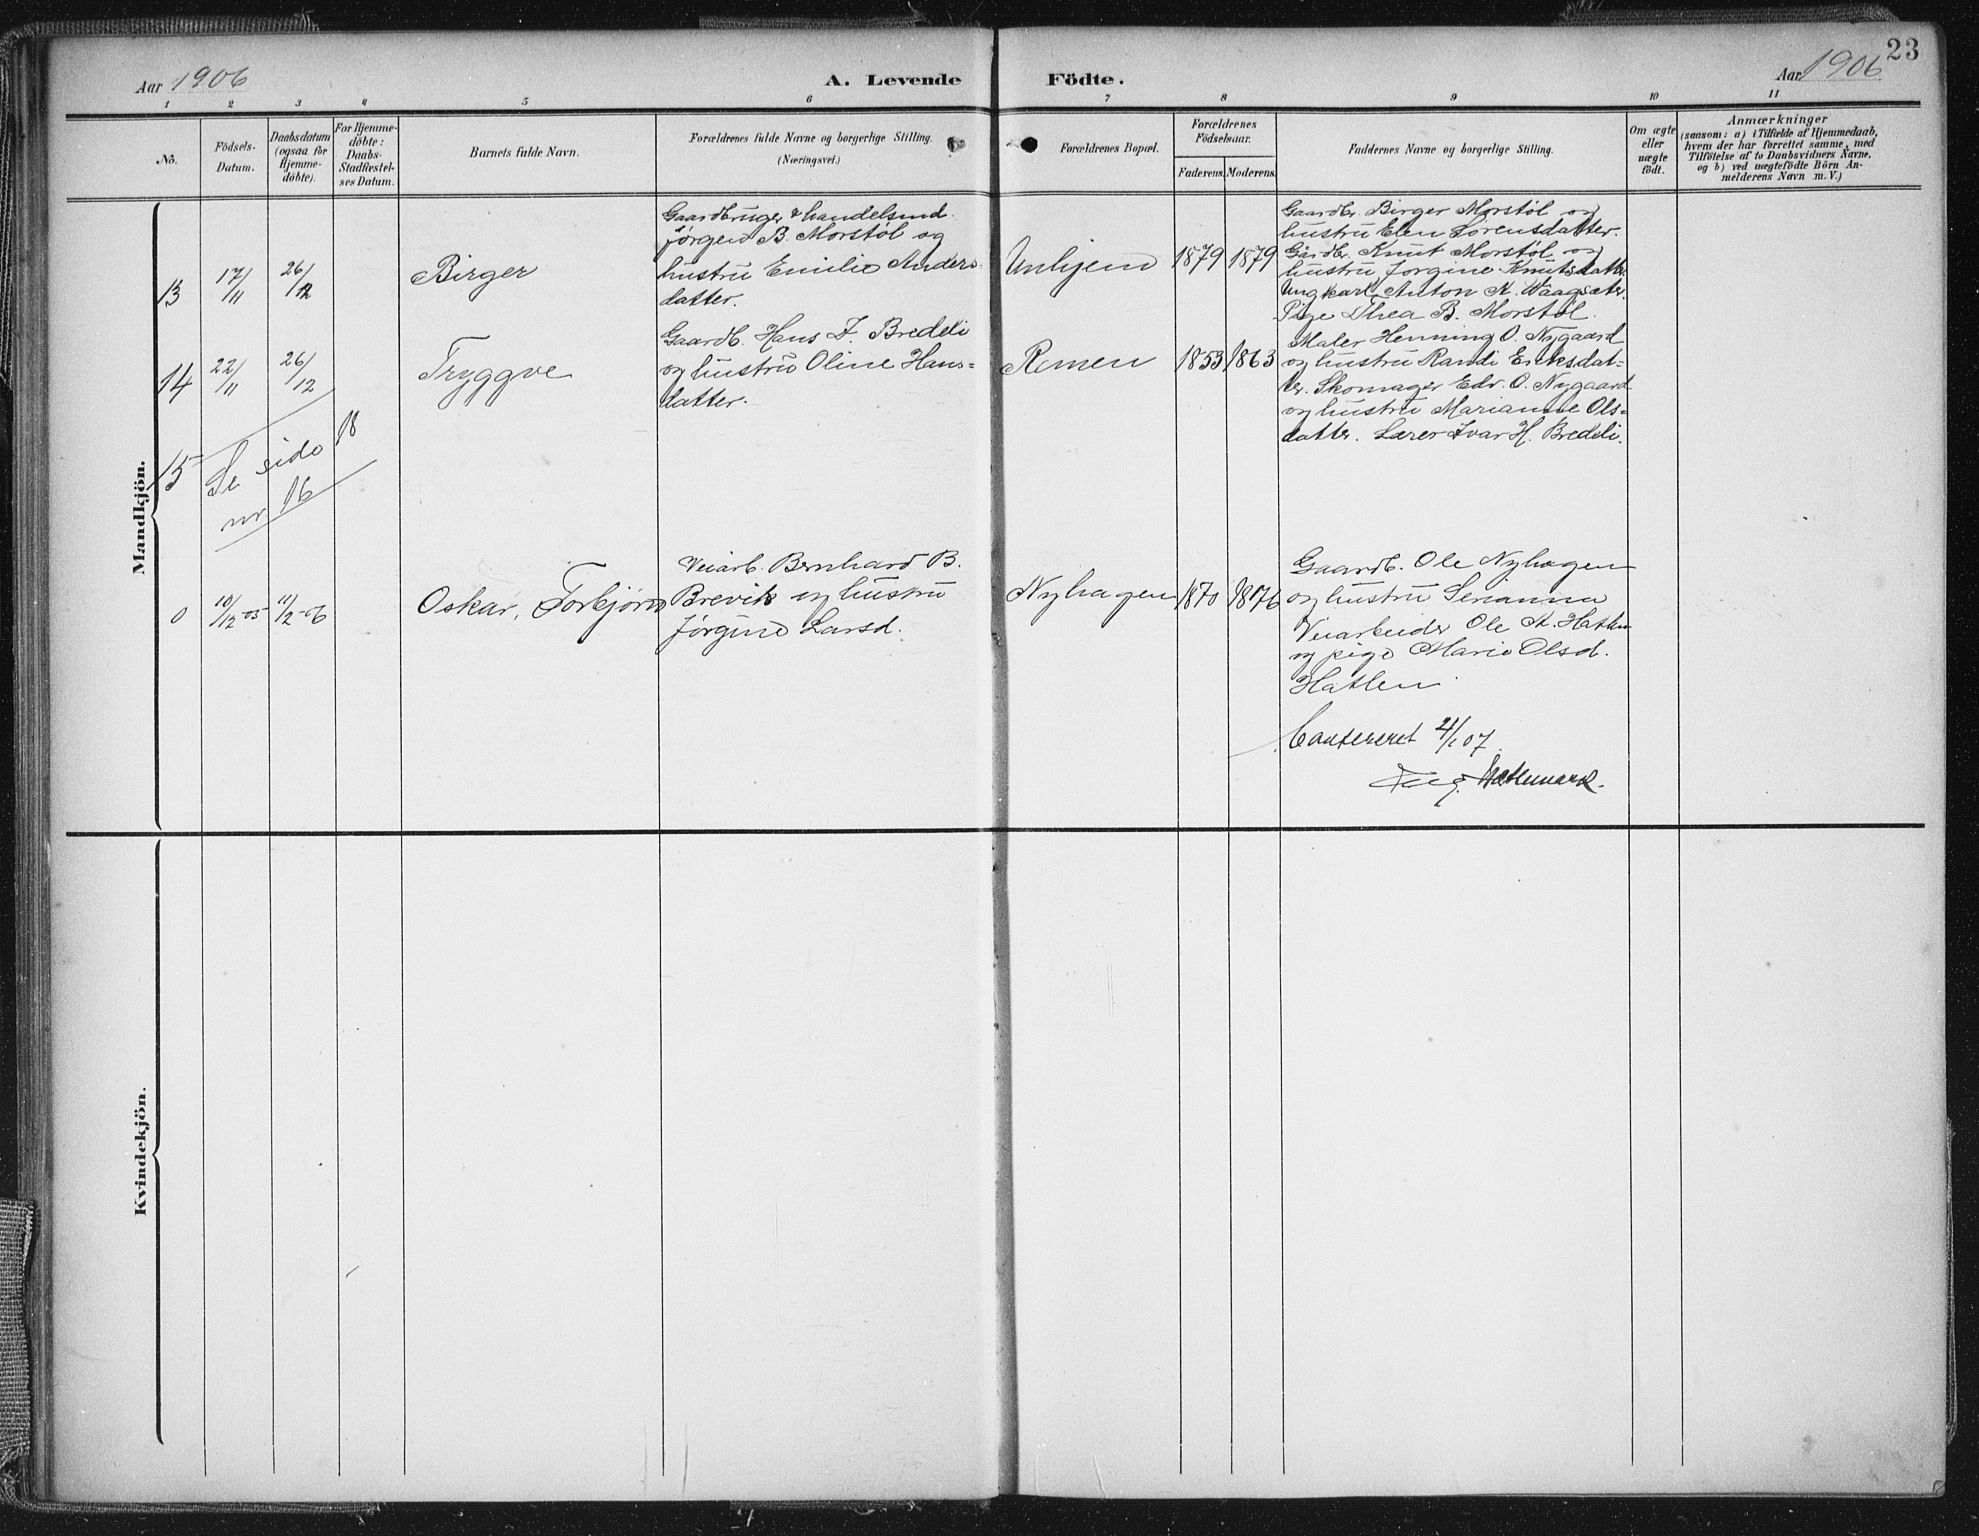 23
Aar 1906
A. Levende
Födte.
Aar 1906
1 2 3 4 5 6 7 8 9 10 11
No.
Födsels-
Datum.
Daabsdatum
(ogsaa for
Hjemme-
döbte).
For Hjemme-
döbte:
Daabs-
Stadfæstel-
ses Datum.
Barnets fulde Navn.
Forældrenes fulde Navne og borgerlige Stilling.
(Næringsvei.)
Forældrenes Bopæl.
Forældrenes
Födselsaar.
Faderens. Moderens.
Faddernes Navne og borgerlige Stilling.
Om ægte
eller
uægte
födt.
Anmærkninger
(saasom: a) i Tilfælde af Hjemmedaab,
hvem der har forrettet samme, med
Tilföielse af to Daabsvidners Navne,
og b) ved uægtefödte Börn An-
melderens Navn m. V.)
Mandkjön.
13
17/11
26/12
Birger
Gaardbruger & handelsmd.
Jørgen B. Morstøl og
hustru Emilie Anders-
datter.
Unhjem
1879 1879
Gaardbr. Birger Morstøl og
hustru Elen Sørensdatter.
Gårdbr. Knut Morstøl og
hustru Jørgine Knutsdatter
Ungkarl Anton K. Waagsæter.
Pige Thea B. Morstøl.
14
22/11
26/12
Tryggve
Gaardb. Hans I. Bredeli
og hustru Oline Hans-
datter.
Remen
1853 1863
Maler Henning O. Nygaard
og hustru Randi Eriksdat-
ter. Skomager Edv. O. Nygaard
og hustru Marianne Ols-
datter. Lærer Ivar H. Bredeli.
15
Se side 18
nr. 16
0
10/12-05
11/2-06
Oskar, Torbjørn
Veiarb. Bernhard B.
Brevik og hustru
Jørgine Larsd.
Nyhagen
1870 1876
Gaardb. Ole Nyhagen
og hustru Serianna
Veiarbeider Ole K. Hatlen
og pige Marie Olsd.
Hatlen
21/1 07
Kvindekjön.